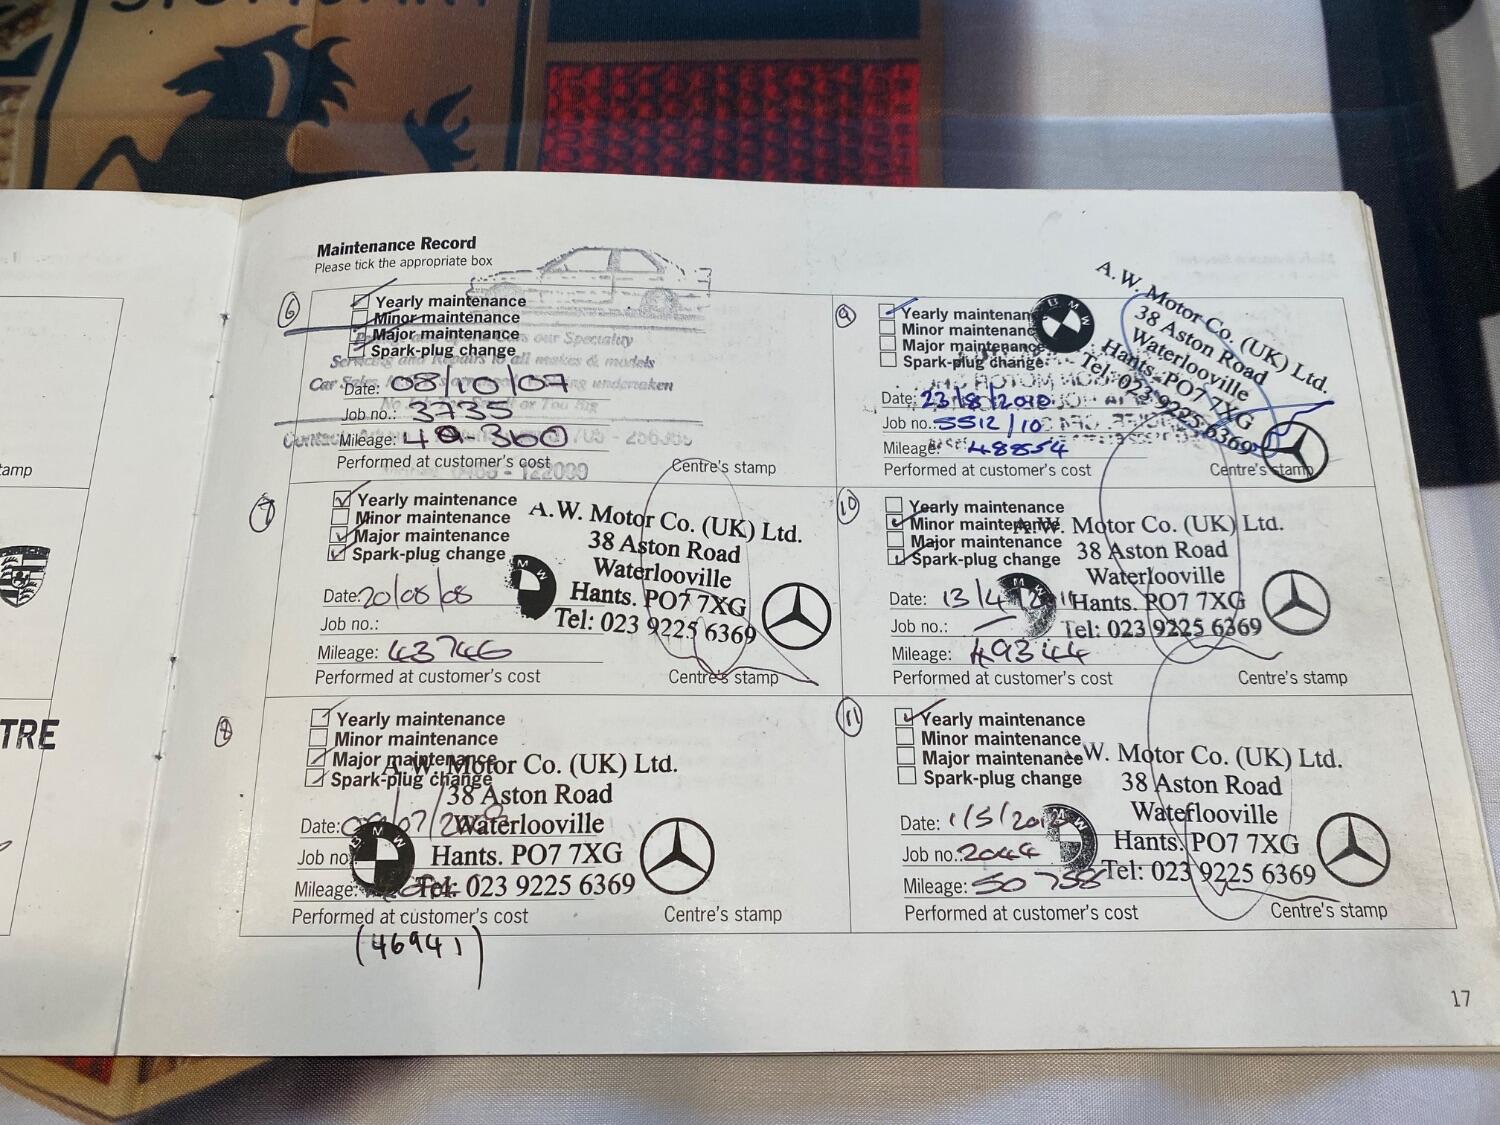 Maintenance Record
Please tick the appropriate box
6
Yearly maintenance
Minor maintenance
Major maintenance
Spark-plug change
our Speciality
Servicing and Repairs to all makes & models
Car Sales undertaken
Date: 08/10/07
Job no.: 3735
Mileage: 40-360
Performed at customer's cost
Centre's stamp
7
Yearly maintenance
Minor maintenance
Major maintenance
Spark-plug change
A.W. Motor Co. (UK) Ltd.
38 Aston Road
Waterlooville
Hants. PO7 7XG
Tel: 023 9225 6369
BMW
Date: 20/08/08
Job no.:
Mileage: 43746
Performed at customer's cost
Centre's stamp
8
Yearly maintenance
Minor maintenance
Major maintenance
Spark-plug change
A.W. Motor Co. (UK) Ltd.
38 Aston Road
Waterlooville
Hants. PO7 7XG
Tel: 023 9225 6369
BMW
Date:
Job no
Mileage:
Performed at customer's cost
Centre's stamp
(46941)
9
Yearly maintenance
Minor maintenance
Major maintenance
Spark-plug change
A.W. Motor Co. (UK) Ltd.
38 Aston Road
Waterlooville
Hants. PO7 7XG
Tel: 023 9225 6369
BMW
Date: 23/8/2010
Job no.: 5512/10
Mileage: 48854
Performed at customer's cost
Centre's stamp
10
Yearly maintenance
Minor maintenance
Major maintenance
Spark-plug change
A.W. Motor Co. (UK) Ltd.
38 Aston Road
Waterlooville
Hants. PO7 7XG
Tel: 023 9225 6369
Date: 13/4/
Job no.: —
Mileage: 49344
Performed at customer's cost
Centre's stamp
11
Yearly maintenance
Minor maintenance
Major maintenance
Spark-plug change
W. Motor Co. (UK) Ltd.
38 Aston Road
Waterlooville
Hants. PO7 7XG
Tel: 023 9225 6369
Date: 1/5/2012
Job no.: 2044
Mileage: 50758
Performed at customer's cost
Centre's stamp
17
tamp
TRE